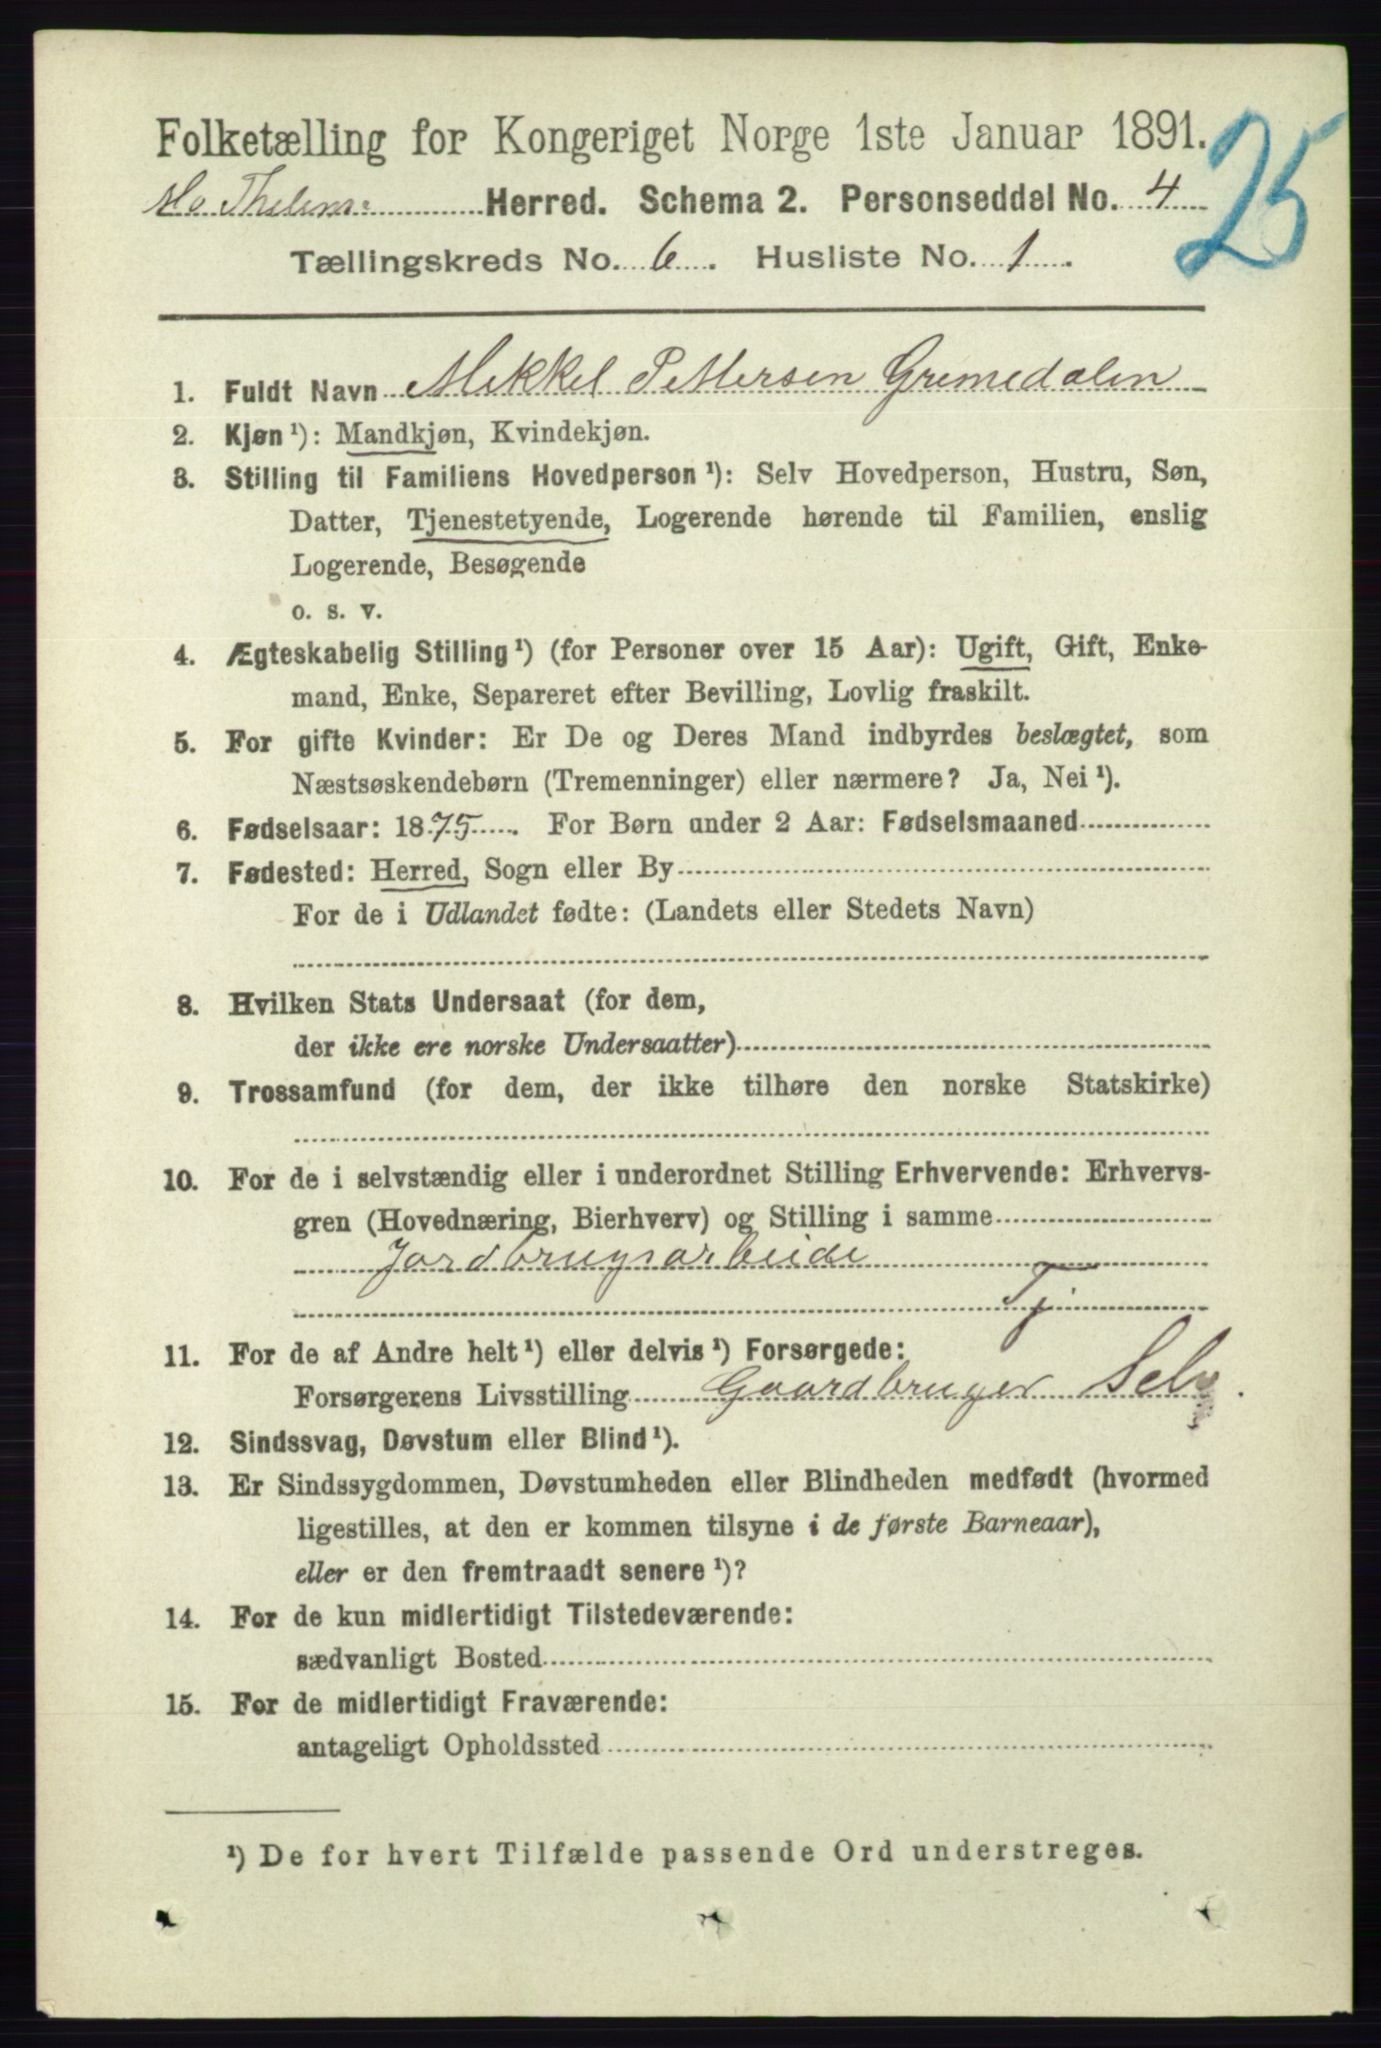 Folketælling for Kongeriget Norge 1ste Januar 1891.
25
Mo Thelem: Herred. Schema 2. Personseddel No. 4
Tællingskreds No. 6. Husliste No. 1.
1. Fuldt Navn Mekkel Pettersen Gremedalen
2. Kjøn ¹): Mandkjøn, Kvindekjøn.
3. Stilling til Familiens Hovedperson ¹): Selv Hovedperson, Hustru, Søn,
Datter, Tjenestetyende, Logerende hørende til Familien, enslig
Logerende, Besøgende
o. s. v.
4. Ægteskabelig Stilling ¹) (for Personer over 15 Aar): Ugift, Gift, Enke-
mand, Enke, Separeret efter Bevilling, Lovlig fraskilt.
5. For gifte Kvinder: Er De og Deres Mand indbyrdes beslægtet, som
Næstsøskendebørn (Tremenninger) eller nærmere? Ja, Nei ¹).
6. Fødselsaar: 1875. For Børn under 2 Aar: Fødselsmaaned
7. Fødested: Herred, Sogn eller By
For de i Udlandet fødte: (Landets eller Stedets Navn)
8. Hvilken Stats Undersaat (for dem,
der ikke ere norske Undersaatter)
9. Trossamfund (for dem, der ikke tilhøre den norske Statskirke)
10. For de i selvstændig eller i underordnet Stilling Erhvervende: Erhvervs-
gren (Hovednæring, Bierhverv) og Stilling i samme
Jordbrugsarbeide
Tj
11. For de af Andre helt ¹) eller delvis ¹) Forsørgede:
Forsørgerens Livsstilling Gaardbruger Selv.
12. Sindssvag, Døvstum eller Blind ¹).
13. Er Sindssygdommen, Døvstumheden eller Blindheden medfødt (hvormed
ligestilles, at den er kommen tilsyne i de første Barneaar),
eller er den fremtraadt senere ¹)?
14. For de kun midlertidigt Tilstedeværende:
sædvanligt Bosted
15. For de midlertidigt Fraværende:
antageligt Opholdssted
¹) De for hvert Tilfælde passende Ord understreges.